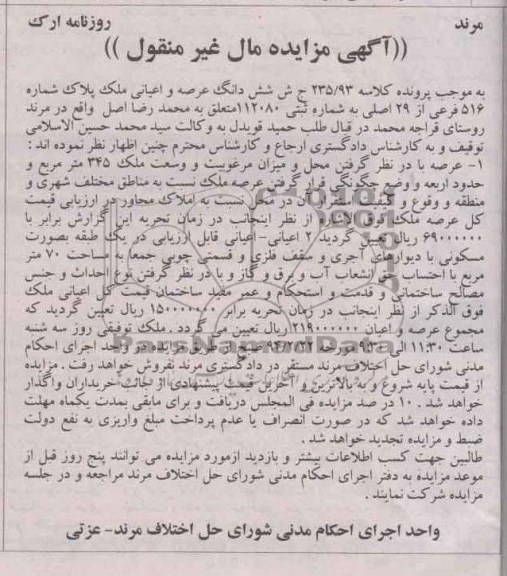 مرند
روزنامه ارک
((آگهی مزایده مال غیر منقول ))
به موجب پرونده کلاسه ۲۳۵/۹۳ ج ش شش دانگ عرصه و اعیانی ملک پلاک شماره
۵۱۶ فرعی از ۲۹ اصلی به شماره ثبتی ۱۱۲۰۸۰متعلق به محمد رضا اصل واقع در مرند
روستای قراجه محمد در قبال طلب حمید قویدل به وکالت سید محمد حسین الاسلامی
توقیف و به کارشناس دادگستری ارجاع و کارشناس محترم چنین اظهار نظر نموده اند :
۱- عرصه با در نظر گرفتن محل و میزان مرغوبیت و وسعت ملک ۳۴۵ متر مربع و
حدود اربعه و وضع چگونگی قرار گرفتن عرصه ملک نسبت به مناطق مختلف شهری و
منطقه و وقوع و کیفیت استقرار آن در محل نسبت به املاک مجاور در ارزیابی قیمت
کل عرصه ملک فوق الاشاره از نظر اینجانب در زمان تحریه این گزارش برابر با
۶۹۰۰۰۰۰۰ ریال تعیین گردید ۲ اعیانی-اعیانی قابل ارزیابی در یک طبقه بصورت
مسکونی با دیوارهای آجری و سقف فلزی و قسمتی چوبی جمعا به مساحت ۷۰ متر
مربع با احتساب حق انشعاب آب و برق و گاز و با در نظر گرفتن نوع احداث و جنس
مصالح ساختمانی و قدمت و استحکام و عمر مفید ساختمان قیمت کل اعیانی ملک
فوق الذکر از نظر اینجانب در زمان تحریه برابر ۱۵۰۰۰۰۰۰۰ ریال تعیین گردید که
مجموع عرصه و اعیان ۲۱۹۰۰۰۰۰۰ ریال تعیین می گردد . ملک توقیفی روز سه شنبه
ساعت ۱۱:۳۰ الی مورخه صبح از طریق مزایده در واحد اجرای احکام
مدنی شورای حل اختلاف مرند مستقر در دادگستری مرند بفروش خواهد رفت . مزایده
از قیمت پایه شروع و به بالاترین و آخرین قیمت پیشنهادی از جانب خریداران واگذار
خواهد شد . ۱۰ در صد مزایده فی المجلس دریافت و برای مابقی بمدت یکماه مهلت
داده خواهد شد که در صورت انصراف یا عدم پرداخت مبلغ واریزی به نفع دولت
ضبط و مزایده تجدید خواهد شد .
طالبین جهت کسب اطلاعات بیشتر و بازدید ازمورد مزایده می توانند پنج روز قبل از
موعد مزایده به دفتر اجرای احکام مدنی شورای حل اختلاف مرند مراجعه و در جلسه
مزایده شرکت نمایند .
واحد اجرای احکام مدنی شورای حل اختلاف مرند- عزتی
ParsNamadData